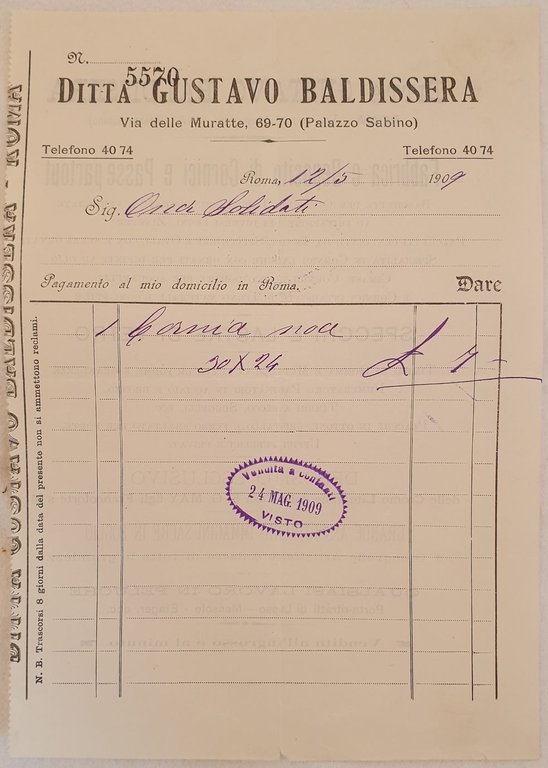 N. 5570
DITTA GUSTAVO BALDISSERA
Via delle Muratte, 69-70 (Palazzo Sabino)
Telefono 40 74 Telefono 40 74
Roma, 12/5 1909
Sig.
Pagamento al mio domicilio in Roma. Dare
1 Cornia noce
30 X 24 £ 7 -
Vendita a contanti
24 MAG. 1909
VISTO
N. B. Trascorsi 8 giorni dalla data del presente non si ammettono reclami.
DITTA GUSTAVO BALDISSERA - ROMA